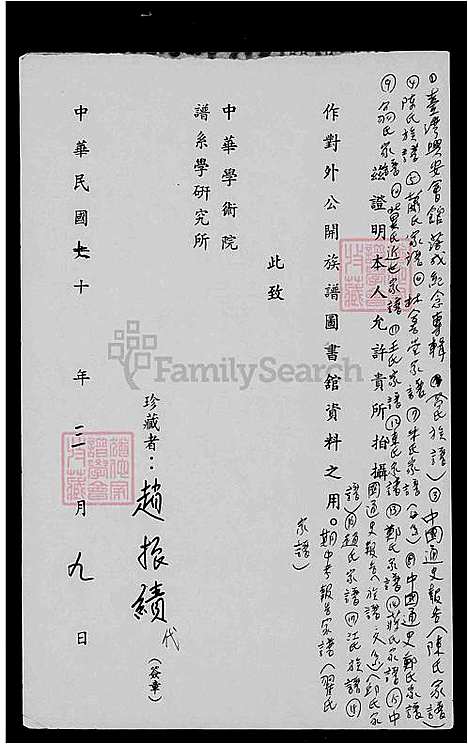 ①臺灣興安會館落成紀念專輯 ②蔡氏族譜 ③中國通史報告(陳氏家譜)
④陳氏族譜 ⑤蕭氏家譜 ⑥林善堂家譜 ⑦朱氏家譜 ⑧中國通史鄭氏家譜
⑨翁氏家譜 近世家譜 ⑪王氏家譜 家譜 鄭氏家譜 蔣氏家譜 ⑮中
國通史報告(族譜 邱氏家
譜) 趙氏家譜 江氏族譜
期中考報告家譜(翟氏
家譜)
茲證明本人允許貴所拍攝
作對外公開族譜圖書館資料之用。
此致
中華學術院
譜系學研究所
珍藏者：趙振績代(簽章)
中華民國七十年三月九日
FamilySearch